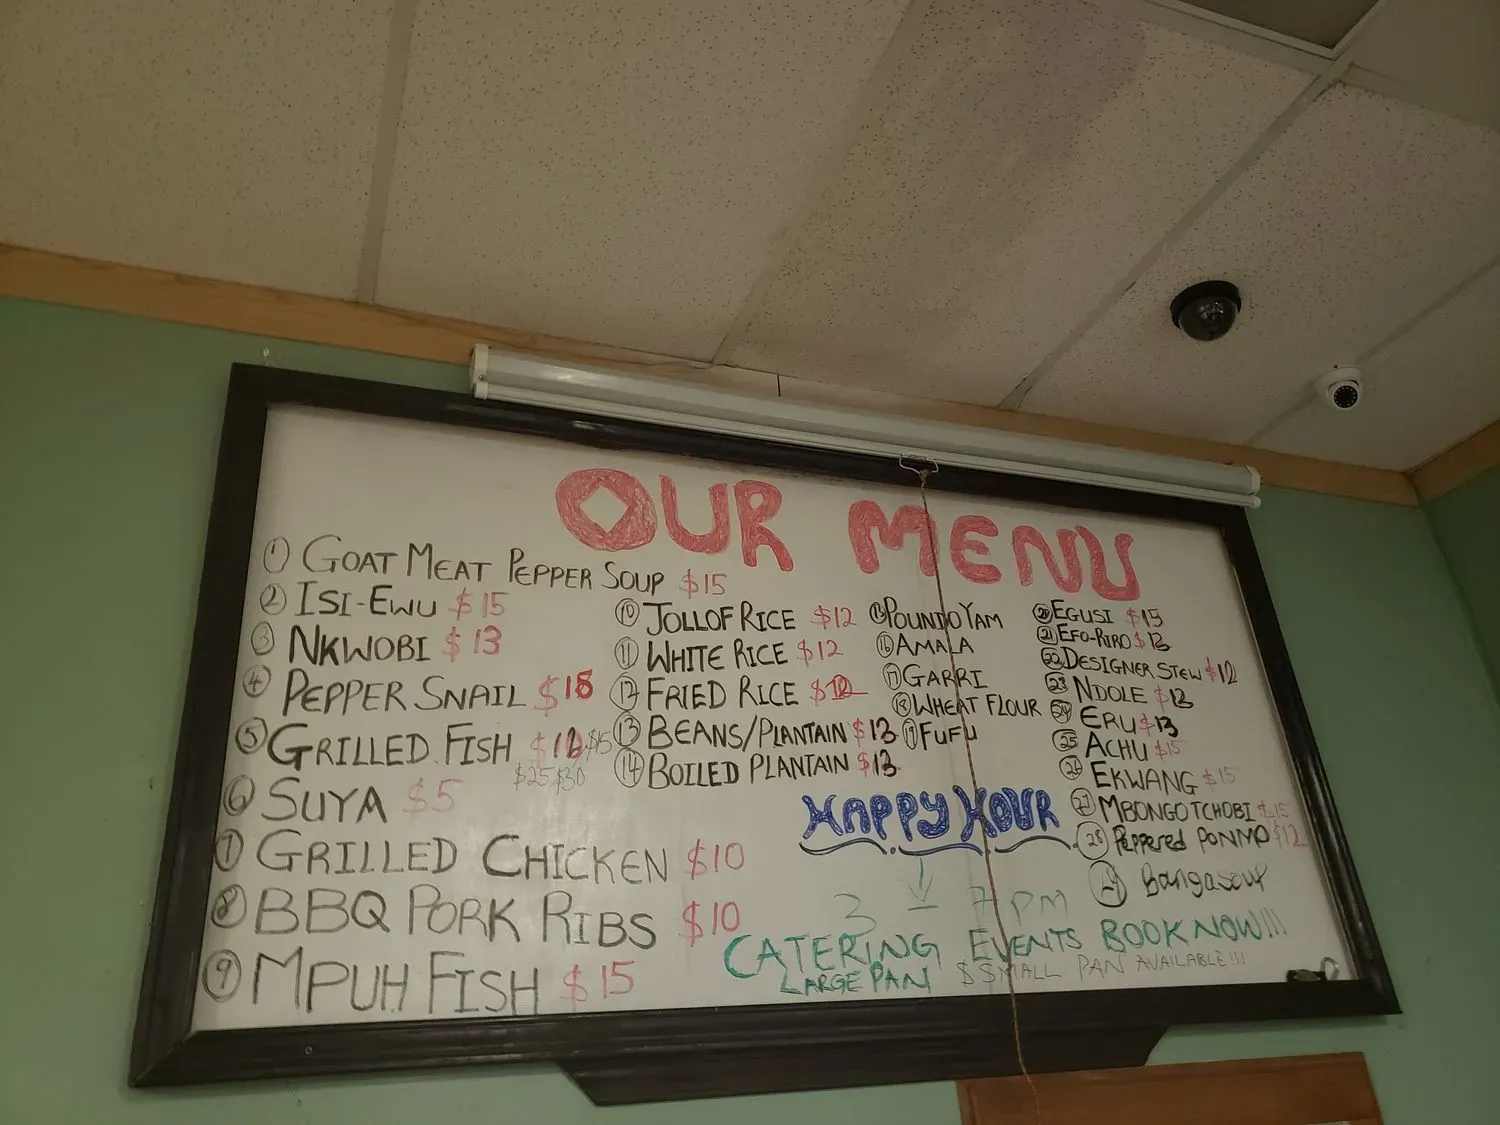 OUR MENU
1 GOAT MEAT PEPPER SOUP $15
2 ISI-EWU $15
3 NKWOBI $13
4 PEPPER SNAIL $15
5 GRILLED FISH $15
$25 $30
6 SUYA $5
7 GRILLED CHICKEN $10
8 BBQ PORK RIBS $10
9 MPUH FISH $15
10 JOLLOF RICE $12
11 WHITE RICE $12
12 FRIED RICE $12
13 BEANS/PLANTAIN $13
14 BOILED PLANTAIN $13
POUNDO YAM
16 AMALA
17 GARRI
18 WHEAT FLOUR
19 FUFU
20 EGUSI $15
21 EFO-RIRO $13
22 DESIGNER STEW $12
23 NDOLE $13
24 ERU $13
25 ACHU $15
26 EKWANG $15
27 MBONGO TCHOBI $15
28 Peppered PONMO $12
29 Bangasoup
HAPPY HOUR
3 - 7 PM
CATERING EVENTS BOOK NOW!!!
LARGE PAN $ SMALL PAN AVAILABLE!!!